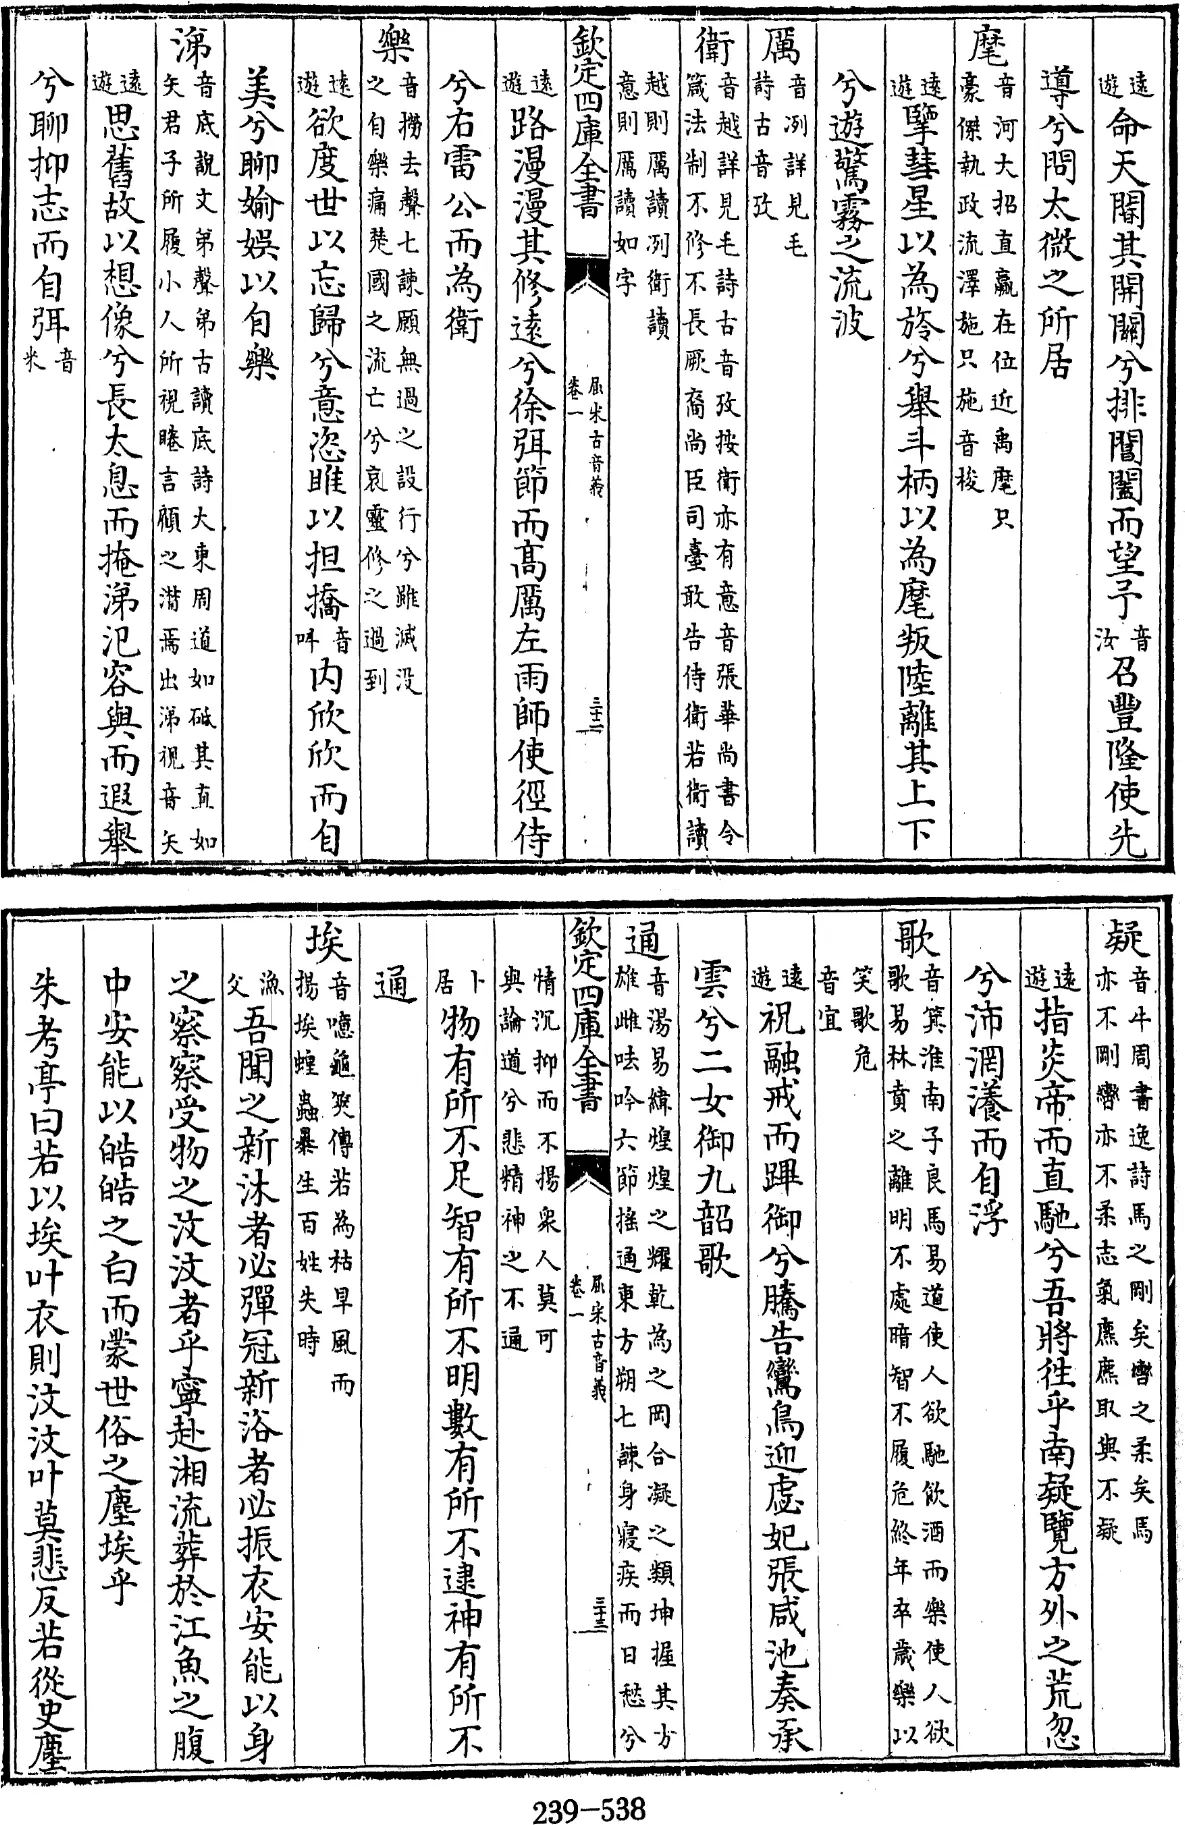 遠遊命天閽其開關兮排閶闔而望予音汝召豐隆使先
導兮問太微之所居
麾音河大招直贏在位近禹麾只
豪傑執政流澤施只施音梭
遠遊擥彗星以為旍兮舉斗柄以為麾叛陸離其上下
兮遊驚霧之流波
厲音冽詳見毛
詩古音攷
衛音越詳見毛詩古音攷按衛亦有意音張華尚書令
箴法制不修不長厥裔尚臣司臺敢告侍衛若衛讀
越則厲讀冽衛讀
意則厲讀如字
欽定四庫全書
屈宋古音義
卷一
三十二
遠遊路漫漫其修遠兮徐弭節而高厲左雨師使徑侍
兮右雷公而為衛
樂音撈去聲七諫願無過之設行兮雖滅没
之自樂痛楚國之流亡兮哀靈修之過到
遠遊欲度世以忘歸兮意恣睢以担撟音叫内欣欣而自
美兮聊媮娱以自樂
涕音底說文弟聲弟古讀底詩大東周道如砥其直如
矢君子所履小人所視睠言顧之潸焉出涕視音矢
遠遊思舊故以想像兮長太息而掩涕氾容與而遐舉
兮聊抑志而自弭音米
疑音牛周書逸詩馬之剛矣轡之柔矣馬
亦不剛轡亦不柔志氣麃麃取與不疑
遠遊指炎帝而直馳兮吾將往乎南疑覽方外之荒忽
兮沛㒺瀁而自浮
歌音箕淮南子良馬易道使人欲馳飲酒而樂使人欲
歌易林賁之離明不處暗智不履危終年卒歲樂以
笑歌危
音宜
遠遊祝融戒而蹕御兮騰告鸞鳥迎虙妃張咸池奏承
雲兮二女御九韶歌
通音湯易緯煌煌之耀乾為之岡合凝之類坤握其方
雄雌呿吟六節搖通東方朔七諫身寢疾而日愁兮
欽定四庫全書
屈宋古音義
卷一
三十三
情沉抑而不揚衆人莫可
與論道兮悲精神之不通
卜居物有所不足智有所不明數有所不逮神有所不
通
埃音噫龜筴傳若為枯旱風而
揚埃蝗蟲暴生百姓失時
漁父吾聞之新沐者必彈冠新浴者必振衣安能以身
之察察受物之汶汶者乎寧赴湘流葬於江魚之腹
中安能以皓皓之白而蒙世俗之塵埃乎
朱考亭曰若以埃叶衣則汶汶叶莫悲反若從史塵
239-538